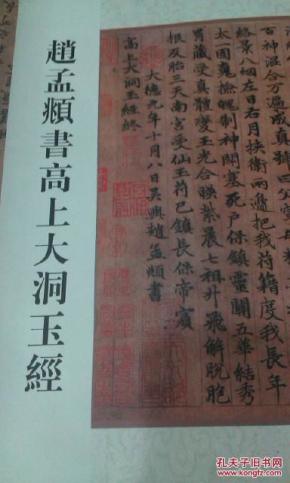 趙孟頫書高上大洞玉經
百神混合万遍成真
絡景八烟左日右月挾衛兩邊把我符籍度我長年
太一固魂撫魄制神閇塞死戶保鎮靈關五華結秀
胃藏受真體變玉光合映紫晨七祖升飛解脫胞
根及胎三天南宮受仙玉符已鎮長保帝賓
高上大洞玉經終
大德九年十月八日吳興趙孟頫書
孔夫子旧书网